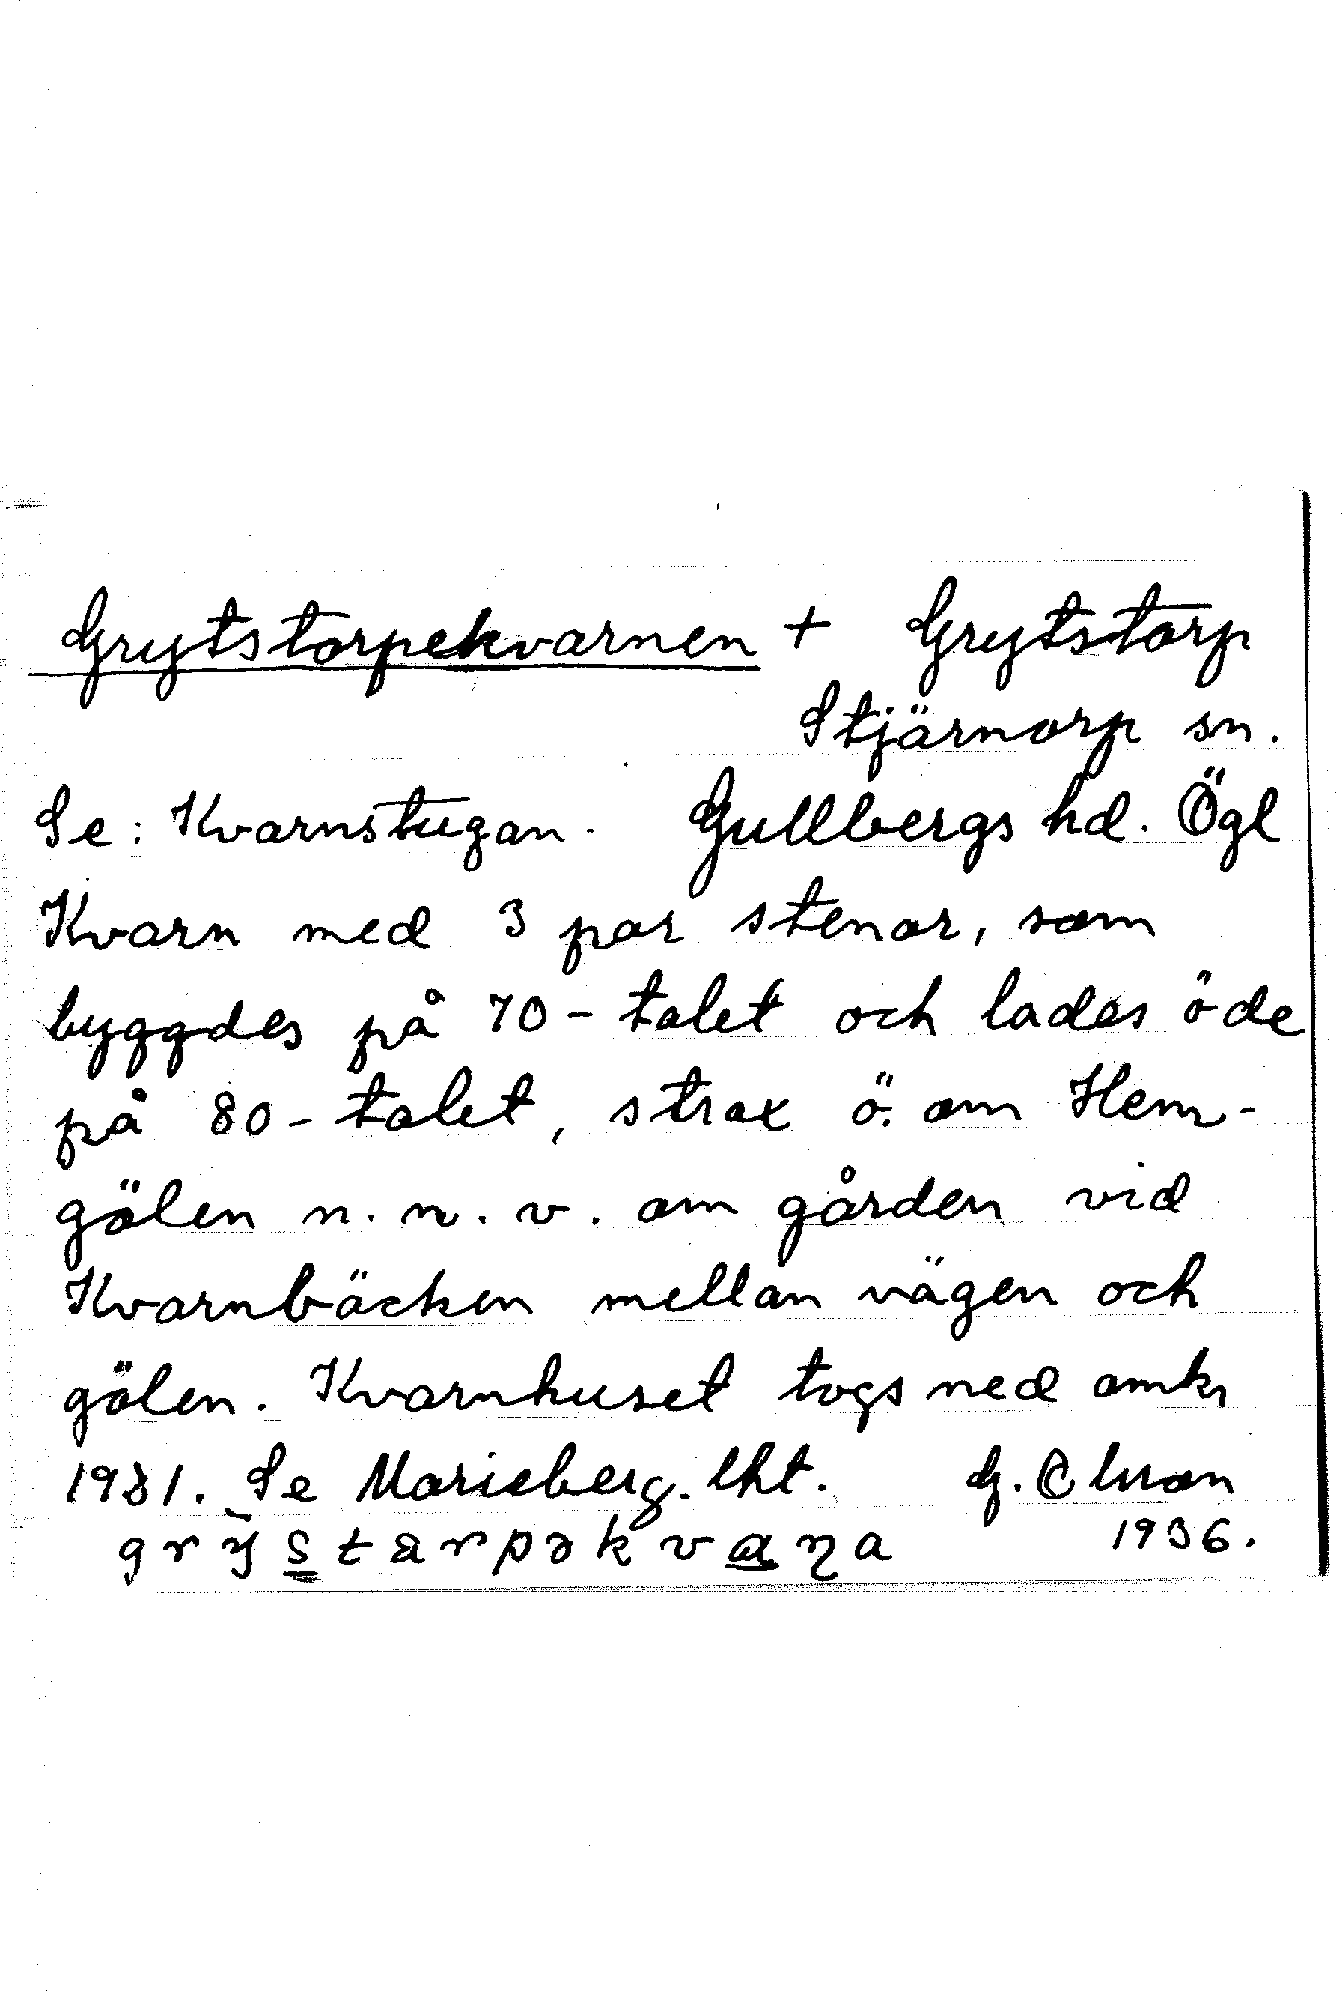 Grytstorpekvarnen + Grytstorp
Stjärnorp sn.
Se: Kvarnstugan. Gullbergs hd. Ögl
Kvarn med 3 par stenar, som
byggdes på 70-talet och lades öde
på 80-talet, strax ö. om Hem-
gölen n.n.v. om gården vid
Kvarnbäcken mellan vägen och
gölen. Kvarnhuset togs ned omkr
1931. Se Marieberg. lht. G.
1936.